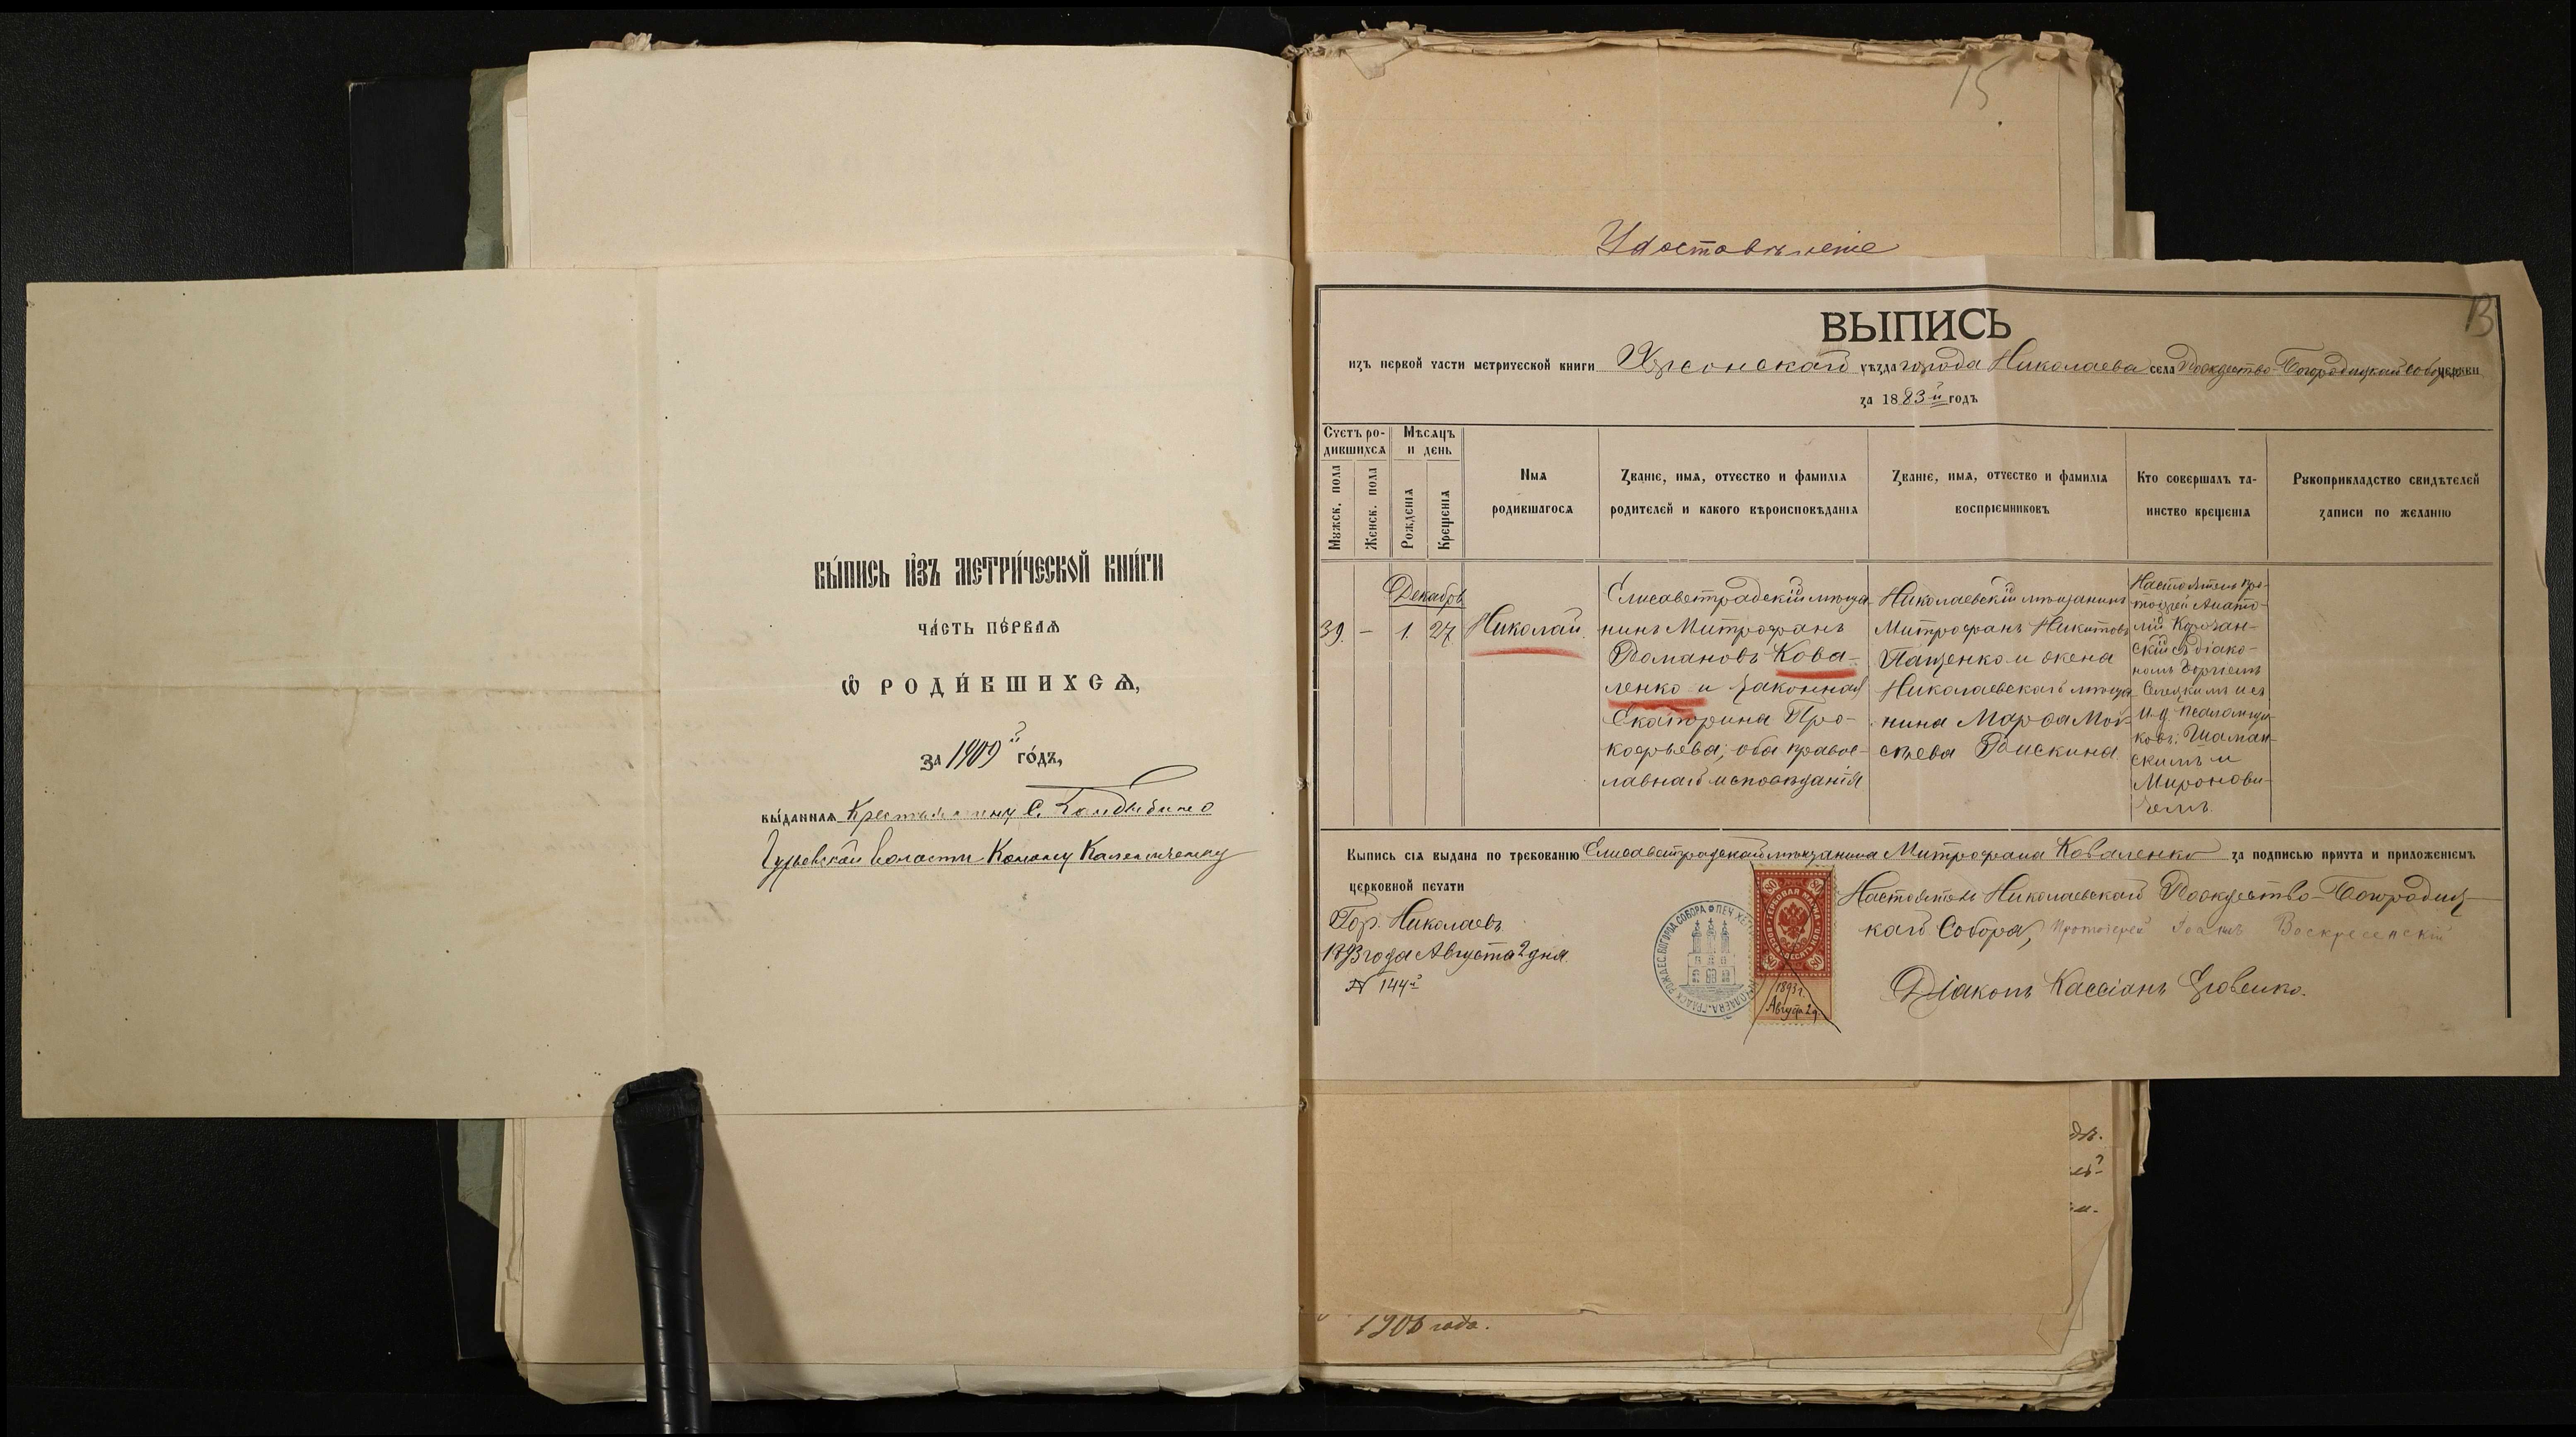 ВЫ́ПИСЬ И҆ЗЪ МЕТРИ́ЧЕСКОЙ КНИ́ГИ
ЧА́СТЬ ПЕ́РВАѦ
Ѡ҆ РОДИ́ВШИХСѦ,
ЗА 1909й ГО́ДЪ,
ВЫ́ДАННАѦ Крестьянину С.
Гурьевской волости Конону
15
Удостовѣреніе
13
ВЫПИСЬ
изъ первой части метрической книги Херсонскаго уѣзда города Николаева села Рождество-Богородицкаго собора церкви
за 1883й годъ
Счетъ родившихся
Мѣсяцъ и день
Мужск. пола
Женск. пола
Рожденія
Крещенія
Имя родившагося
Званіе, имя, отчество и фамилія родителей и какого вѣроисповѣданія
Званіе, имя, отчество и фамилія воспріемниковъ
Кто совершалъ таинство крещенія
Рукоприкладство свидѣтелей записи по желанію
Декабрь
39. – 1. 27 Николай.
Елисаветградскій мѣща-
нинъ Митрофанъ
Романовъ Кова-
ленко и законная
Екатерина Про-
кофьева, оба правос-
лавнаго исповѣданія
Николаевскій мѣщанинъ
Митрофанъ Никитовъ
Пащенко и жена
Николаевскаго мѣща-
нина Марфа Мои-
сѣева Рискина.
Настоятель про-
тоіерей Анато-
лій Корчан-
скій съ діако-
номъ Георгіемъ
Селецкимъ и съ
и. д. псаломщи-
ковъ: Шаман-
скимъ и
Миронови-
чемъ.
Выпись сія выдана по требованію Елисаветградскаго мѣщанина Митрофана Коваленко за подписью причта и приложеніемъ
церковной печати
Гор. Николаевъ
1893 года Августа 2 дня.
№ 144й
80
ГЕРБОВАЯ МАРКА
ВОСЕМЬДЕСЯТЪ КОП.
1893 г.
Августа 2 д.
Настоятель Николаевскаго Рождество-Богородиц-
каго Собора, Протоіерей Іоаннъ Воскресенскій
Діаконъ Кассіанъ Яковенко.
дѣ.
1908 года.